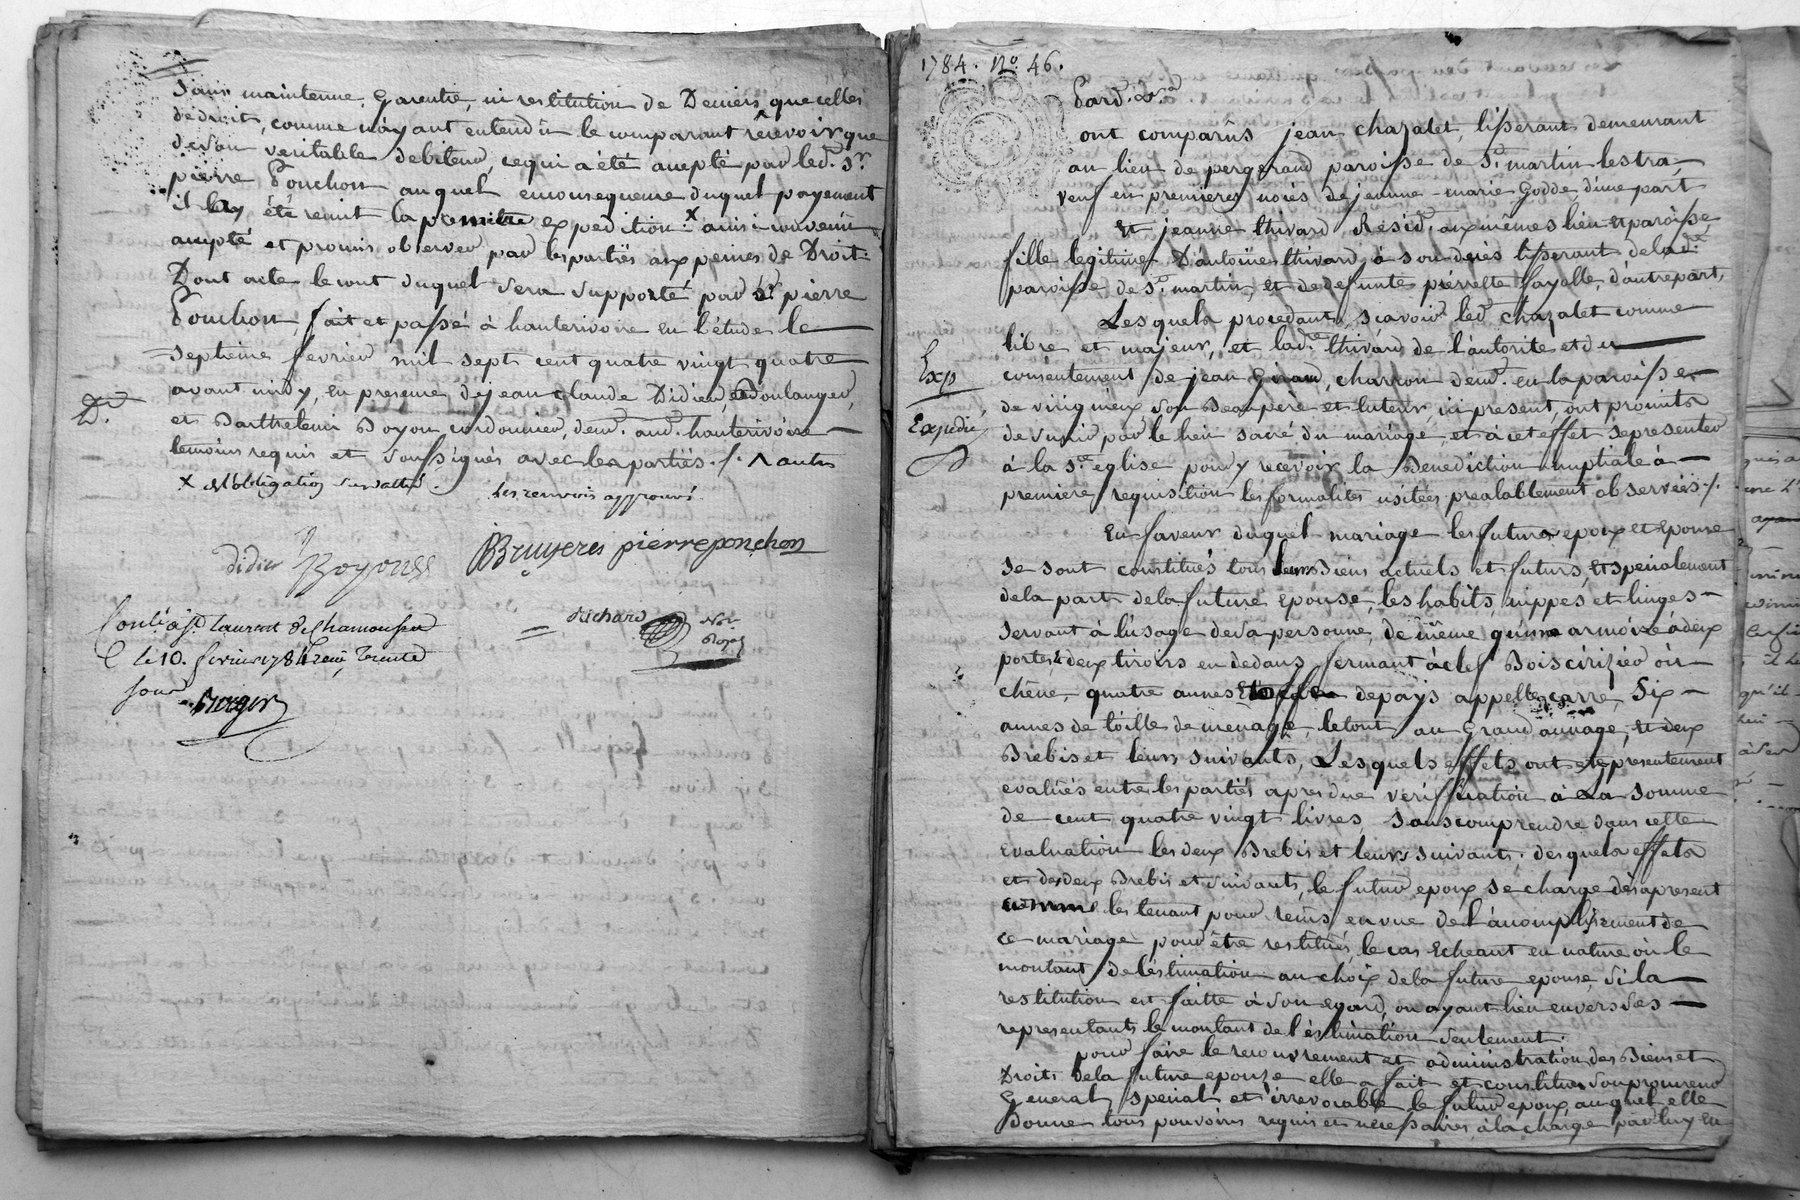 Sans maintenue, Garentie, ni restitution de Deniers, que celles
de droit, comme nayant entendu le comparant recevoir que
de son veritable debiteur, ce qui a été accepté par led. Sr.
pierre Ponchon auquel en consequence duquel payement
il a été remit la premiere expedition X ainsi convenu
accepté et promis observer par les parties aux peines de Droit.
Dont acte le cout duquel sera supporté par Sr. pierre
Ponchon, fait et passé à hauterivoire en l'étude le
septieme fevrier mil sept cent quatre vingt quatre
avant midy, en presence de jean claude Didier, Boulanger,
et Barthelemi Boyon cordonnier, demt. aud. hauterivoire
temoins requis et soussignés avec les parties ./.
X d'obligation
les renvois approuvés
didier Boyon Bruyeres pierre ponchon
Richard Not. Royal
Con.lé à St. Laurent de Chamousset
le 10. fevrier 1784 reçu trente
sous
Berger
1784. No. 46.
Pard. &a
ont comparûs jean chazalet, tisserant demeurant
au lieu de pergerand paroisse de St. martin lestra,
veuf en premieres noces de jeanne-marie Godde, d'une part
Et jeanne thivard Resid. aux mêmes lieu et paroisse,
fille legitime d'antoine thivard, à son deces tisserant de lade.
paroisse de St. martin, et de defunte pierrette fayelle, d'autre part,
Lesquels procedants, scavoir led. chazalet comme
libre et majeur, et lade. thivard de l'autorité et du
Exp
consentement de jean Giraud, charron demt. en la paroisse
de viricigneux son Beaupere et tuteur, ici present, ont promis
Expedié
de s'unir par le lien sacré du mariage et à cet effet se presenter
à la Ste. eglise pour y recevoir la Benediction nuptiale à
premiere requisition les formalités usitées prealablement observées ./.
En faveur duquel mariage les futurs epoux et epouse
se sont constitués tous leurs biens actuels et futurs, et specialement
de la part de la future epouse, les habits, nippes et linges
servant à l'usage de sa personne, de même qu'une armoire à deux
portes & deux tiroirs en dedans fermant à clef Bois cérizier où
chêne, quatre aunes de pays appellé carre, Six
aunes de toille de menage, le tout au Grand aunage, et deux
Brebis et leurs suivants, Lesquels effets ont été presentement
evalués entre les parties apres due verification à La Somme
de cent quatre vingt livres, sans comprendre dans cette
evaluation les deux Brebis et leurs suivants. desquels effets
et des deux Brebis et suivants, le futur epoux se charge des apresent
comme les tenant pour reçus, en vue de l'accomplissement de
ce mariage pour être restitués, le cas Echeant en nature où le
montant de l'estimation au choix de la future epouse, si la
restitution est faitte à son egard, ou ayant lieu envers ses
representants le montant de l'estimation seulement.
pour faire le recouvrement et administration des Biens et
Droits de la future epouse elle a fait et constitué son procureur
General, special et irrevocable le futur epoux, auquel elle
Donne tous pouvoirs requis et necessaires, à la charge par luy en